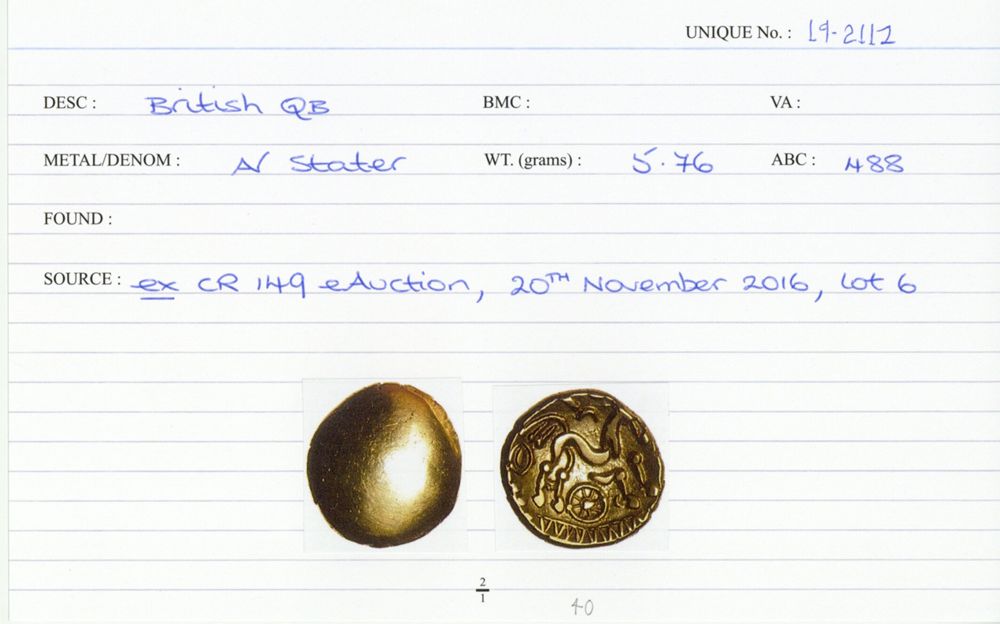 UNIQUE No. : 19-2112
DESC : British QB BMC : VA :
METAL/DENOM : AV Stater WT. (grams) : 5.76 ABC : 488
FOUND :
SOURCE : ex CR 149 eAuction, 20TH November 2016, Lot 6
2
1
40